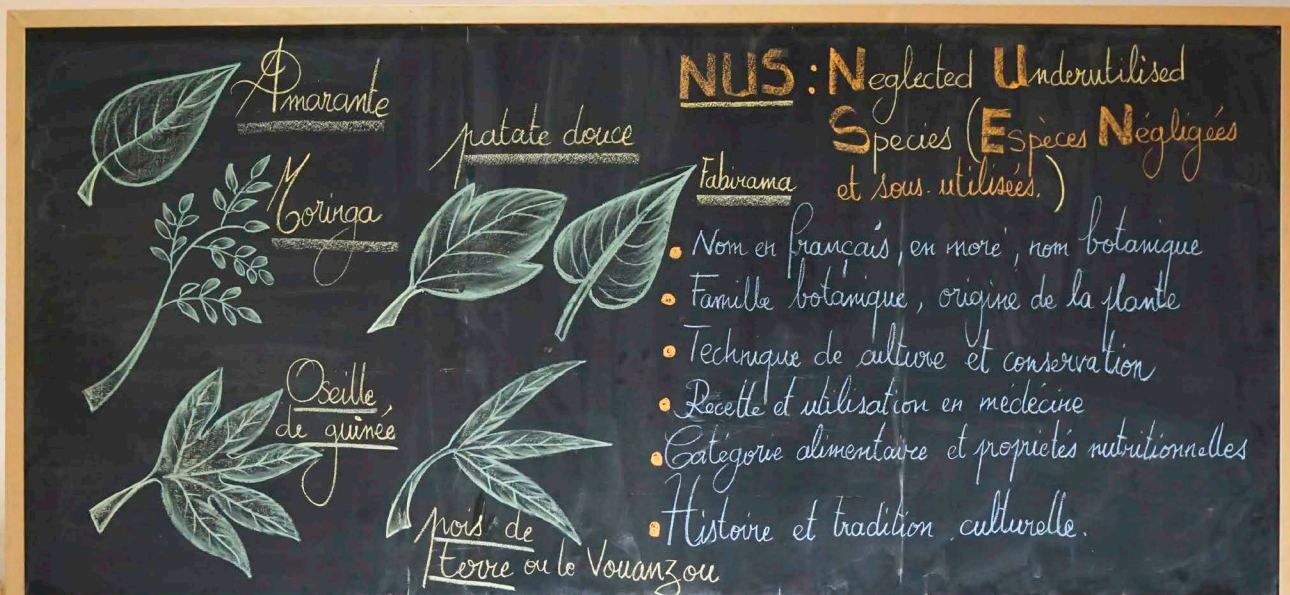 Amarante
Moringa
patate douce
Fabirama
Oseille
de guinée
pois de
terre ou le Vouanzou
NUS : Neglected Underutilised
Species (Espèces Négligées
et sous-utilisées.)
Nom en français, en moré, nom botanique
Famille botanique, origine de la plante
Technique de culture et conservation
Recette et utilisation en médécine
Catégorie alimentaire et propriétés nutritionnelles
Histoire et tradition culturelle.